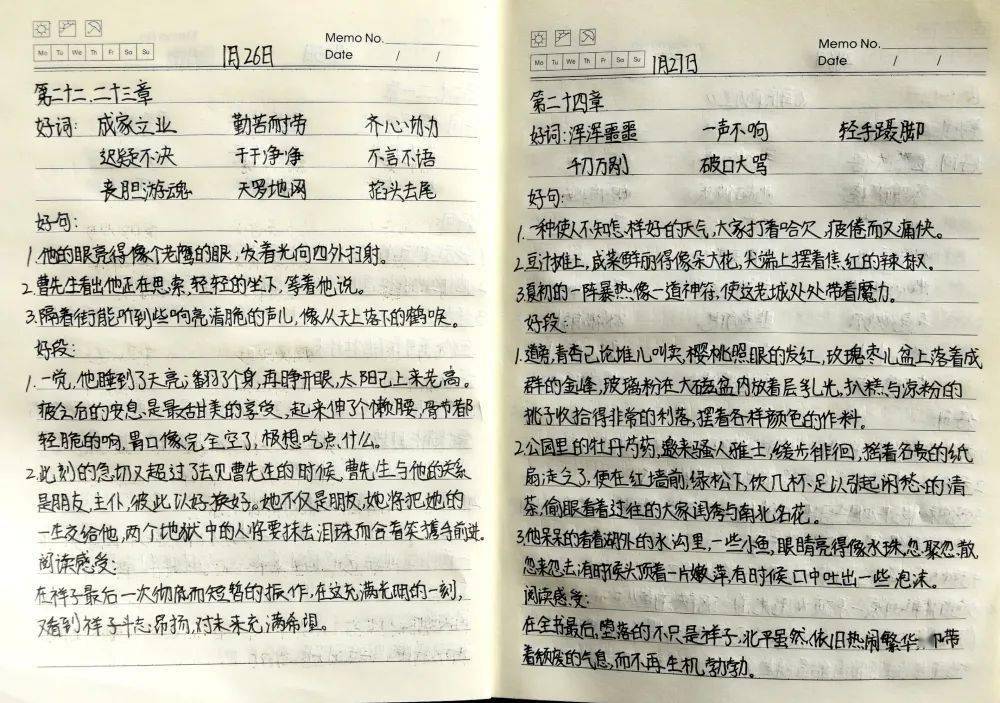 Memo No.
Mo Tu We Th Fr Sa Su
Date / /
1月26日
第二十二、二十三章
好词: 成家立业 勤苦耐劳 齐心协力
迟疑不决 干干净净 不言不语
丧胆游魂 天罗地网 掐头去尾
好句:
1.他的眼亮得像个老鹰的眼,发着光向四外扫射。
2.曹先生看出他正在思索,轻轻的坐下,等着他说。
3.隔着街能听到些响亮清脆的声儿,像从天上落下的鹤唳。
好段:
1.一觉,他睡到了天亮;翻了个身,再睁开眼,太阳已上来老高。
疲乏后的安息,是最甜美的享受,起来伸了个懒腰,骨节都
轻脆的响,胃口像完全空了,极想吃点什么。
2.此刻的急切又超过了去见曹先生的时候,曹先生与他的关系
是朋友,主仆,彼此以好换好。她不仅是朋友,她将把她的
一生交给他,两个地狱中的人将要抹去泪珠而含着笑携手前进。
阅读感受:
在祥子最后一次彻底而短暂的振作,在这充满光明的一刻,
又看到祥子斗志昂扬,对未来充满希望。
Memo No.
Mo Tu We Th Fr Sa Su
Date / /
1月27日
第二十四章
好词:浑浑噩噩 一声不响 轻手蹑脚
千刀万剐 破口大骂
好句:
1.一种使人不知怎样好的天气,大家打着哈欠,疲倦而又痛快。
2.豆汁摊上,咸菜鲜丽得像朵大花,尖端上摆着焦红的辣椒。
3.夏初的一阵暴热像一道神符,使这老城处处带着魔力。
好段:
1.道旁,青杏已论堆儿叫卖,樱桃照眼的发红,玫瑰枣儿盆上落着成
群的金蜂,玻璃粉在大磁盆内放着层乳光,扒糕与凉粉的
挑子收拾得非常的利落,摆着各样颜色的作料。
2.公园里的牡丹芍药,邀来骚人雅士,缓步徘徊,摇着名贵的纸
扇;走乏了,便在红墙前,绿松下,饮几杯不足以引起闲愁的清
茶,偷眼看着过往的大家闺秀与南北名花。
3.他呆呆的看着湖外的水沟里,一些小鱼,眼睛亮得像水珠,忽聚忽散,
忽来忽去;有时候头顶着一片嫩萍,有时候口中吐出一些泡沫。
阅读感受:
在全书最后,堕落的不只是祥子,北平虽然依旧热闹繁华,带
着颓废的气息,而不再生机勃勃。